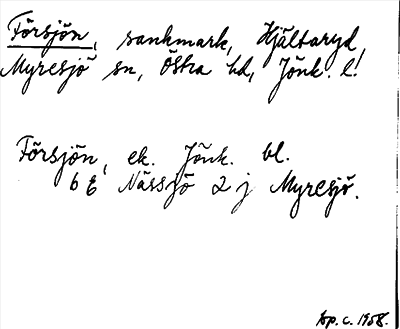 Försjön, sankmark, Hjältaryd,
Myresjö sn, Östra hd, Jönk. l.
Försjön, ek. Jönk. bl.
6 E Nässjö 2 j Myresjö.
Ap. c. 1958.